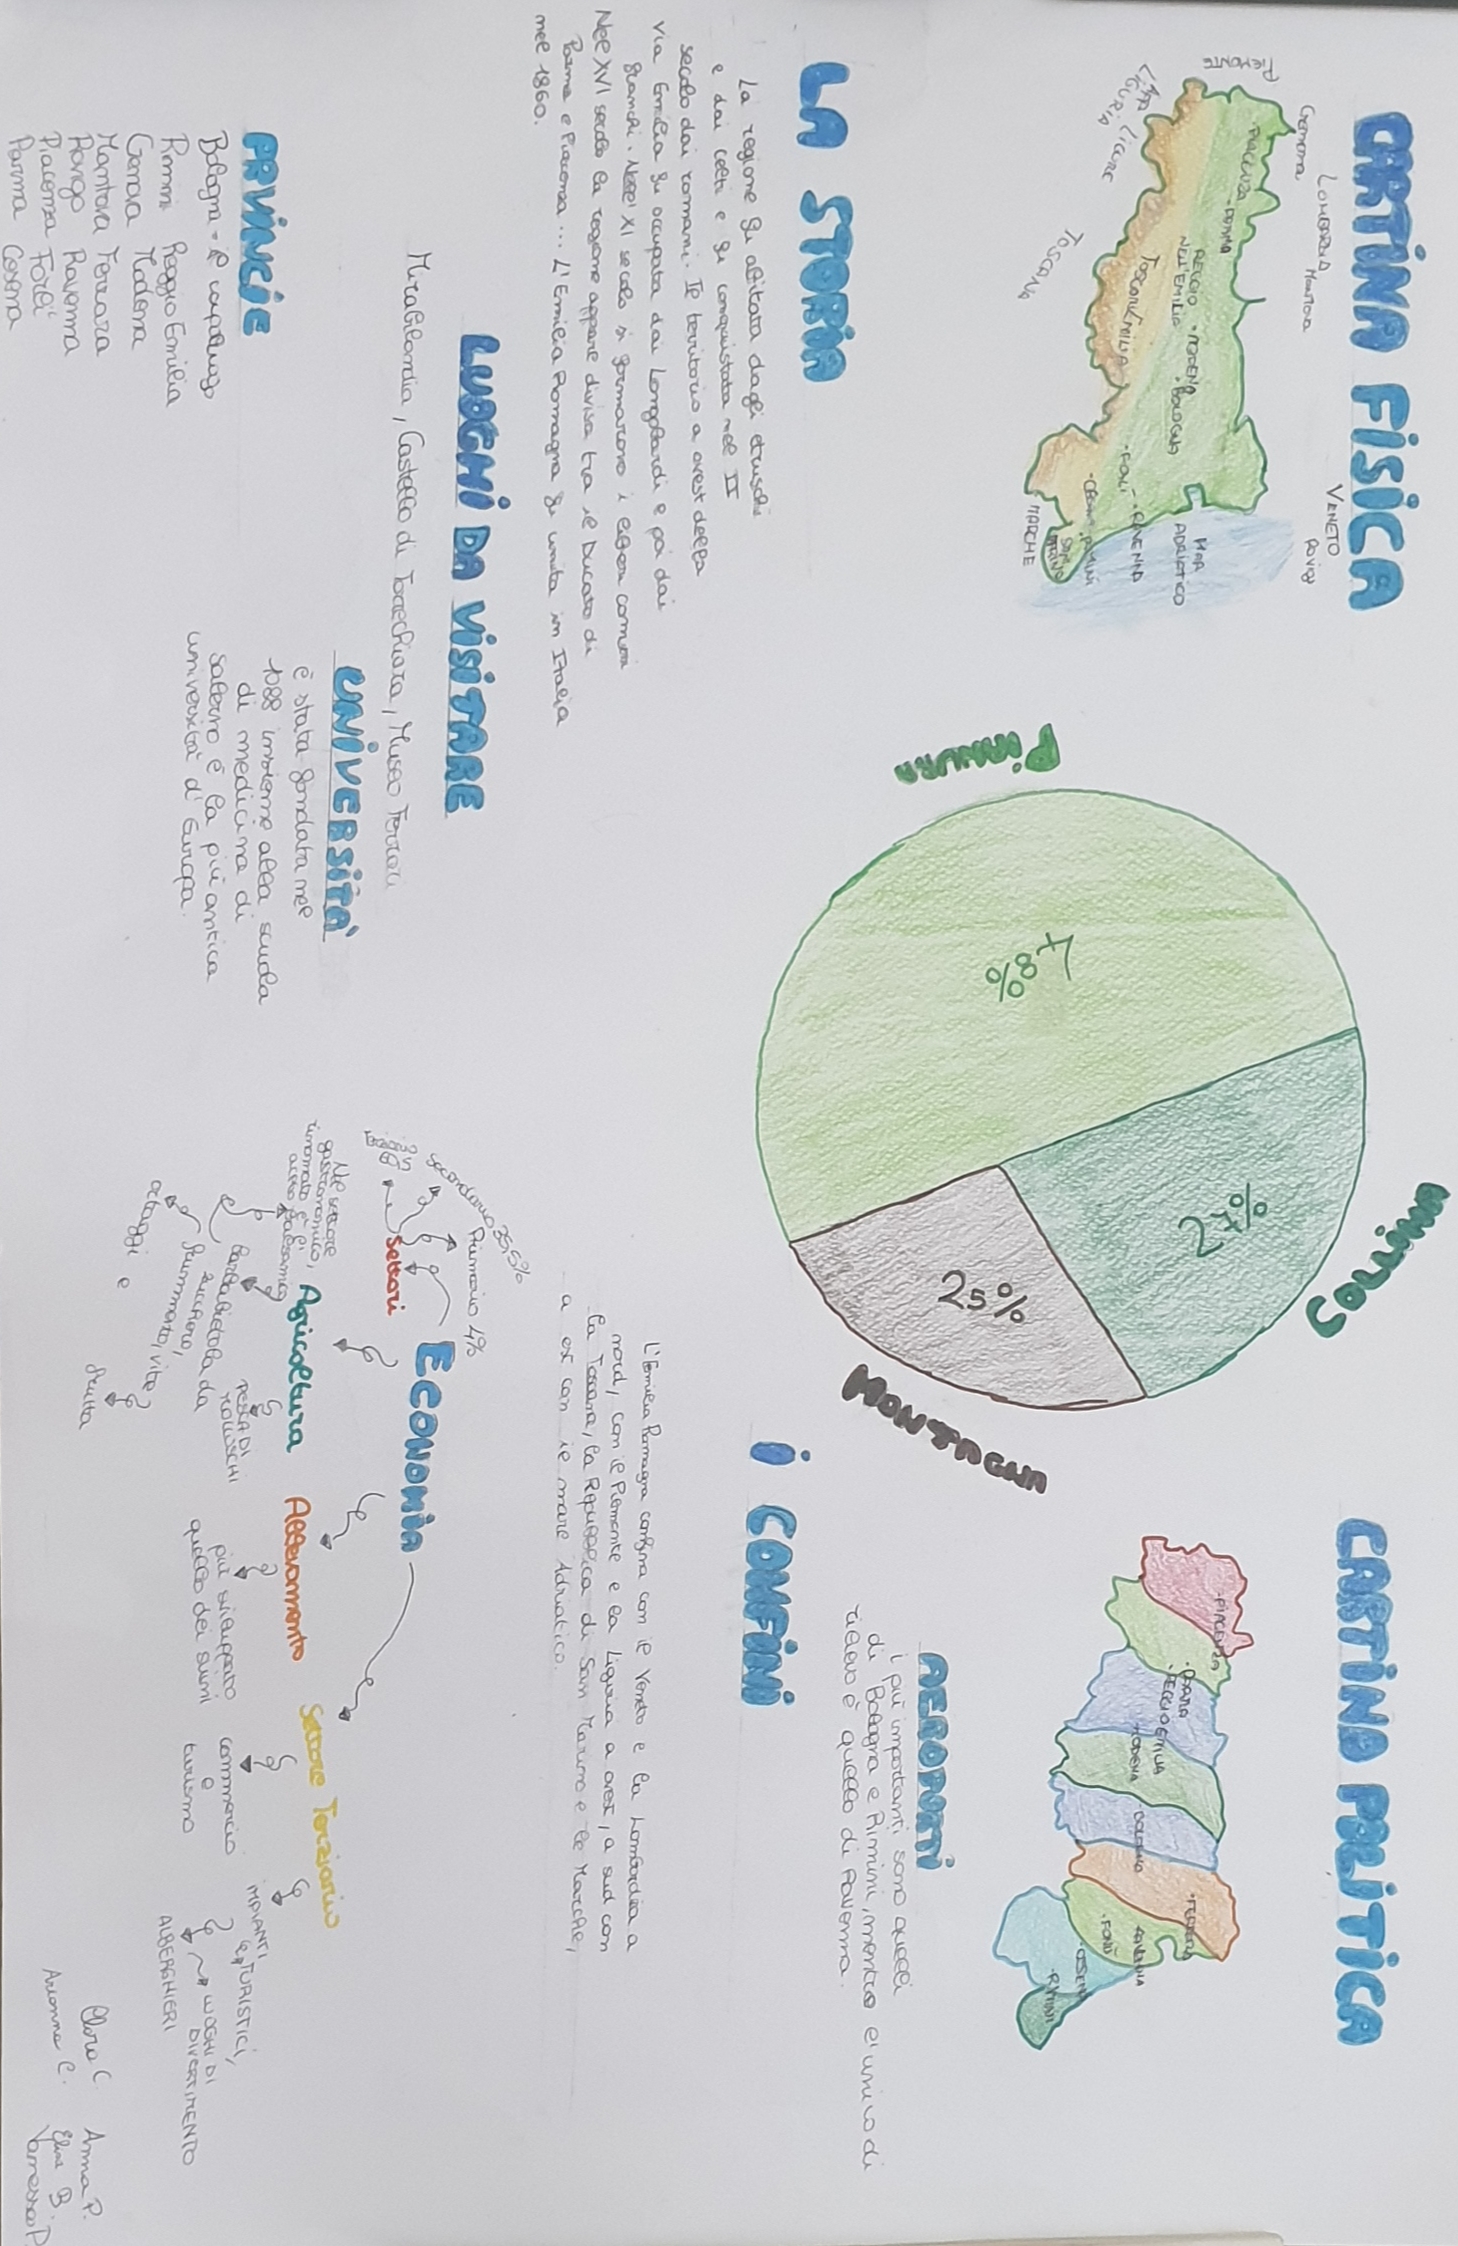 CARTINA FISICA
Cremona
LOMBARDIA
Mantova
VENETO
PIEMONTE
LIGURIA
TOSCANA
MARCHE
PIACENZA
PARMA
REGGIO
NELL'EMILIA
MODENA
BOLOGNA
FORLÌ
RAVENNA
CESENA
RIMINI
SAN
MARINO
MAR
ADRIATICO
PIANURA
48%
COLLINA
27%
MONTAGNA
25%
CARTINA POLITICA
PIACENZA
PARMA
REGGIO EMILIA
MODENA
BOLOGNA
FERRARA
RAVENNA
FORLÌ
CESENA
RIMINI
AEROPORTI
i più importanti sono quelli
di Bologna e Rimini, mentre l'unico di
rilievo è quello di Ravenna.
LA STORIA
La regione fu abitata dagli etruschi
e dai celti e fu conquistata nel II
secolo dai romani. Il territorio a ovest della
via Emilia fu occupata dai Longobardi e poi dai
franchi. Nell'XI secolo si formarono i liberi comuni
Nel XVI secolo la regione appare divisa tra il Ducato di
Parma e Piacenza... L'Emilia Romagna fu unita in Italia
nel 1860.
I CONFINI
L'Emilia Romagna confina con il Veneto e la Lombardia a
nord, con il Piemonte e la Liguria a ovest, a sud con
la Toscana, la Repubblica di San Marino e le Marche,
a est con il mare Adriatico.
LUOGHI DA VISITARE
Mirabilandia, Castello di Torrechiara, Museo Ferrari
UNIVERSITÀ
è stata fondata nel
1088 insieme alla scuola
di medicina di
Salerno è la più antica
università d'Europa.
PRVINCIE
Bologna = il capoluogo
Rimini Reggio Emilia
Genova Modena
Mantova Ferrara
Rovigo Ravenna
Piacenza Forlì
Parma Cesena
ECONOMIA
Settori
Primario 4%
secondario 35,5%
Agricoltura
Nel settore
gastronomico,
rinomato è l'
aceto balsamico
barbabietola da
zucchero,
frumento, vite
ortaggi e
frutta
PESCA DI
MOLLUSCHI
Allevamento
più sviluppato
quello dei suini
Settore Terziario
commercio
e
turismo
IMPIANTI
TURISTICI,
ALBERGHIERI
LUOGHI DI
DIVERTIMENTO
Clara C. Anna P.
Arianna C. Elisa B.
Vanessa P.